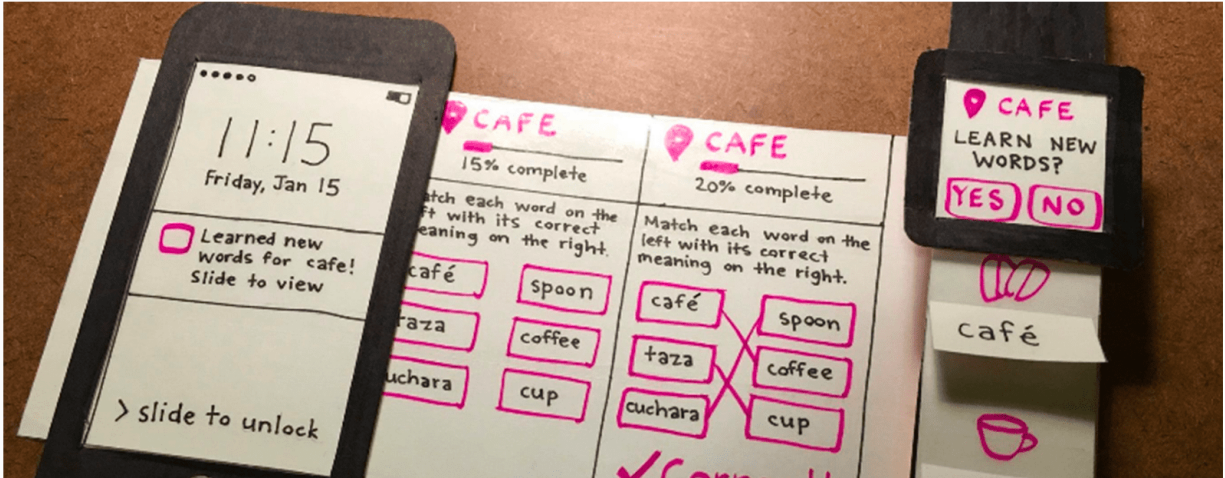 11:15
Friday, Jan 15
Learned new
words for cafe!
Slide to view
> slide to unlock
CAFE
15% complete
each word on the
with its correct
on the right.
café
spoon
coffee
cup
CAFE
20% complete
Match each word on the
left with its correct
meaning on the right.
café
spoon
taza
coffee
cuchara
cup
CAFE
LEARN NEW
WORDS?
YES
NO
café